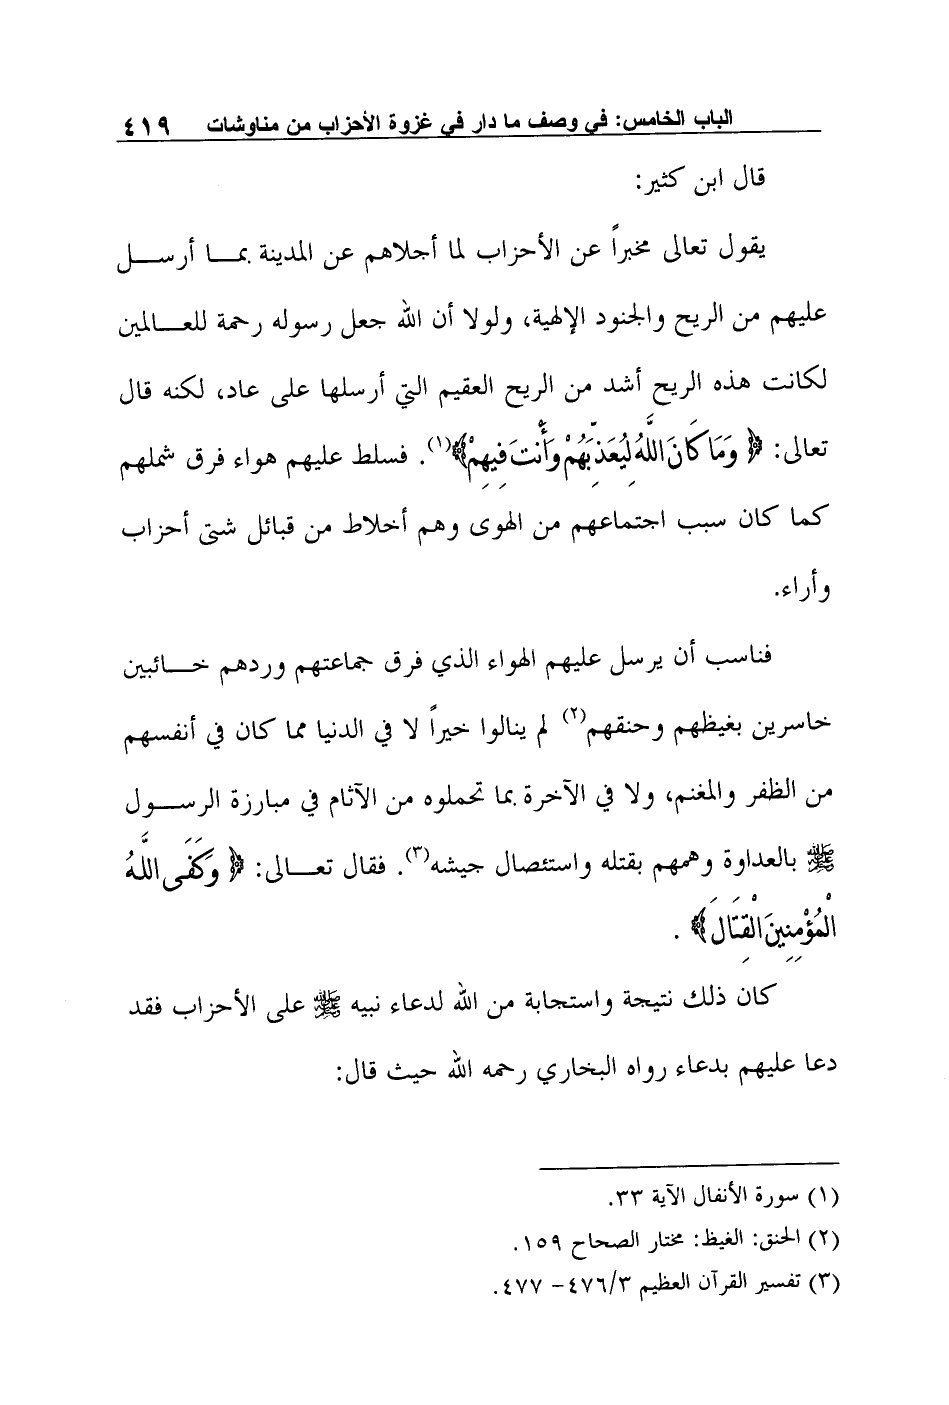 الباب الخامس: في وصف ما دار في غزوة الأحزاب من مناوشات ٤١٩
قال ابن كثير:
يقول تعالى مخبراً عن الأحزاب لما أجلاهم عن المدينة بمـــا أرســـل
عليهم من الريح والجنود الإلهية، ولولا أن الله جعل رسوله رحمة للعـــالمين
لكانت هذه الريح أشد من الريح العقيم التي أرسلها على عاد، لكنه قال
تعالى: ﴿وَمَا كَانَ اللَّهُ لِيُعَذِّبَهُمْ وَأَنتَ فِيهِمْ﴾(١). فسلط عليهم هواء فرق شملهم
كما كان سبب اجتماعهم من الهوى وهم أخلاط من قبائل شتى أحزاب
وأراء.
فناسب أن يرسل عليهم الهواء الذي فرق جماعتهم وردهم خـــائبين
خاسرين بغيظهم وحنقهم(٢) لم ينالوا خيراً لا في الدنيا مما كان في أنفسهم
من الظفر والمغنم، ولا في الآخرة بما تحملوه من الآثام في مبارزة الرســـول
ﷺ بالعداوة وهمهم بقتله واستئصال جيشه(٣). فقال تعـــالى: ﴿وَكَفَى اللَّهُ
الْمُؤْمِنِينَ الْقِتَالَ﴾ .
كان ذلك نتيجة واستجابة من الله لدعاء نبيه ﷺ على الأحزاب فقد
دعا عليهم بدعاء رواه البخاري رحمه الله حيث قال:
(١) سورة الأنفال الآية ٣٣.
(٢) الحنق: الغيظ: مختار الصحاح ١٥٩.
(٣) تفسير القرآن العظيم ٤٧٦/٣– ٤٧٧.